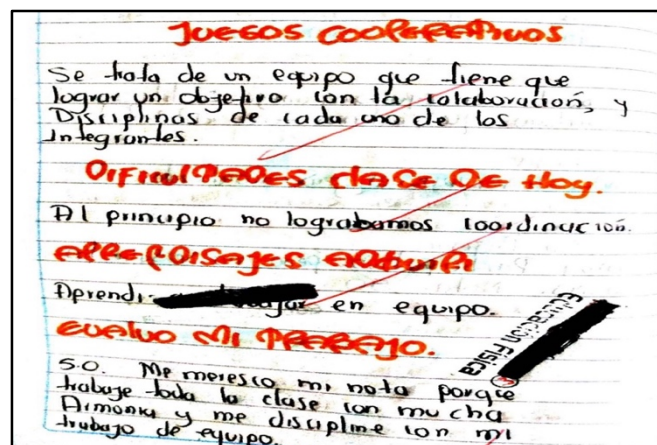 JUEGOS COOPERATIVOS
Se trata de un equipo que tiene que
lograr un objetivo con la colaboración, y
Disciplinas de cada uno de los
Integrantes.
DIFICULTADES CLASE DE HOY.
Al principio no lograbamos coordinación.
APRENDISAJES ADQUIRI
Aprendi en equipo.
EVALUO MI TRABAJO.
5.0. Me meresco mi nota porque
trabaje toda la clase con mucha
Armonia y me discipline con mi
trabajo de equipo.
Educación Física